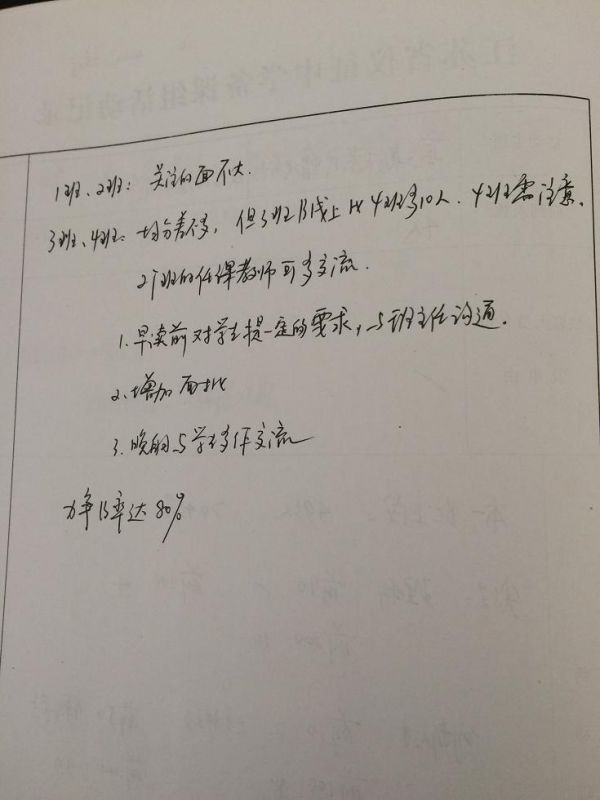 1班、2班：关注的面不大.
3班、4班：均分差不多，但3班B线上比4班多10人. 4班需注意.
2个班的任课教师可多交流.
1. 早读前对学生提一定的要求，与班主任沟通.
2. 增加面批
3. 晚自与学生多作交流
力争B率达80%